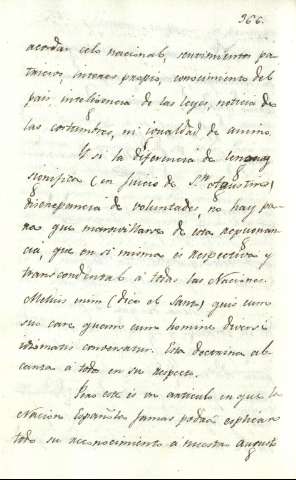 366.
acordar celo nacional, sentimientos pa-
tricios, interes propio, conocimiento del
pais, inteligencia de las leyes, noticia de
las costumbres, ni igualdad de animo.
Y si la diferencia de lenguas
significa (en juicio de Sn. Agustin)
discrepancia de voluntades, no hay pa-
ra que maravillarse de esta repugnan-
cia, que en si misma es respectiva y
transcendental á todas las Naciones.
Melius enim (dice el Santo) quis cum
suo cane quam cum homine diversi
idiomatis conversatur. Esta doctrina al-
canza á todo en su respecto.
Pero este es un articulo en que la
Nacion Española jamas podrá esplicar
todo su reconocimiento á nuestro augusto